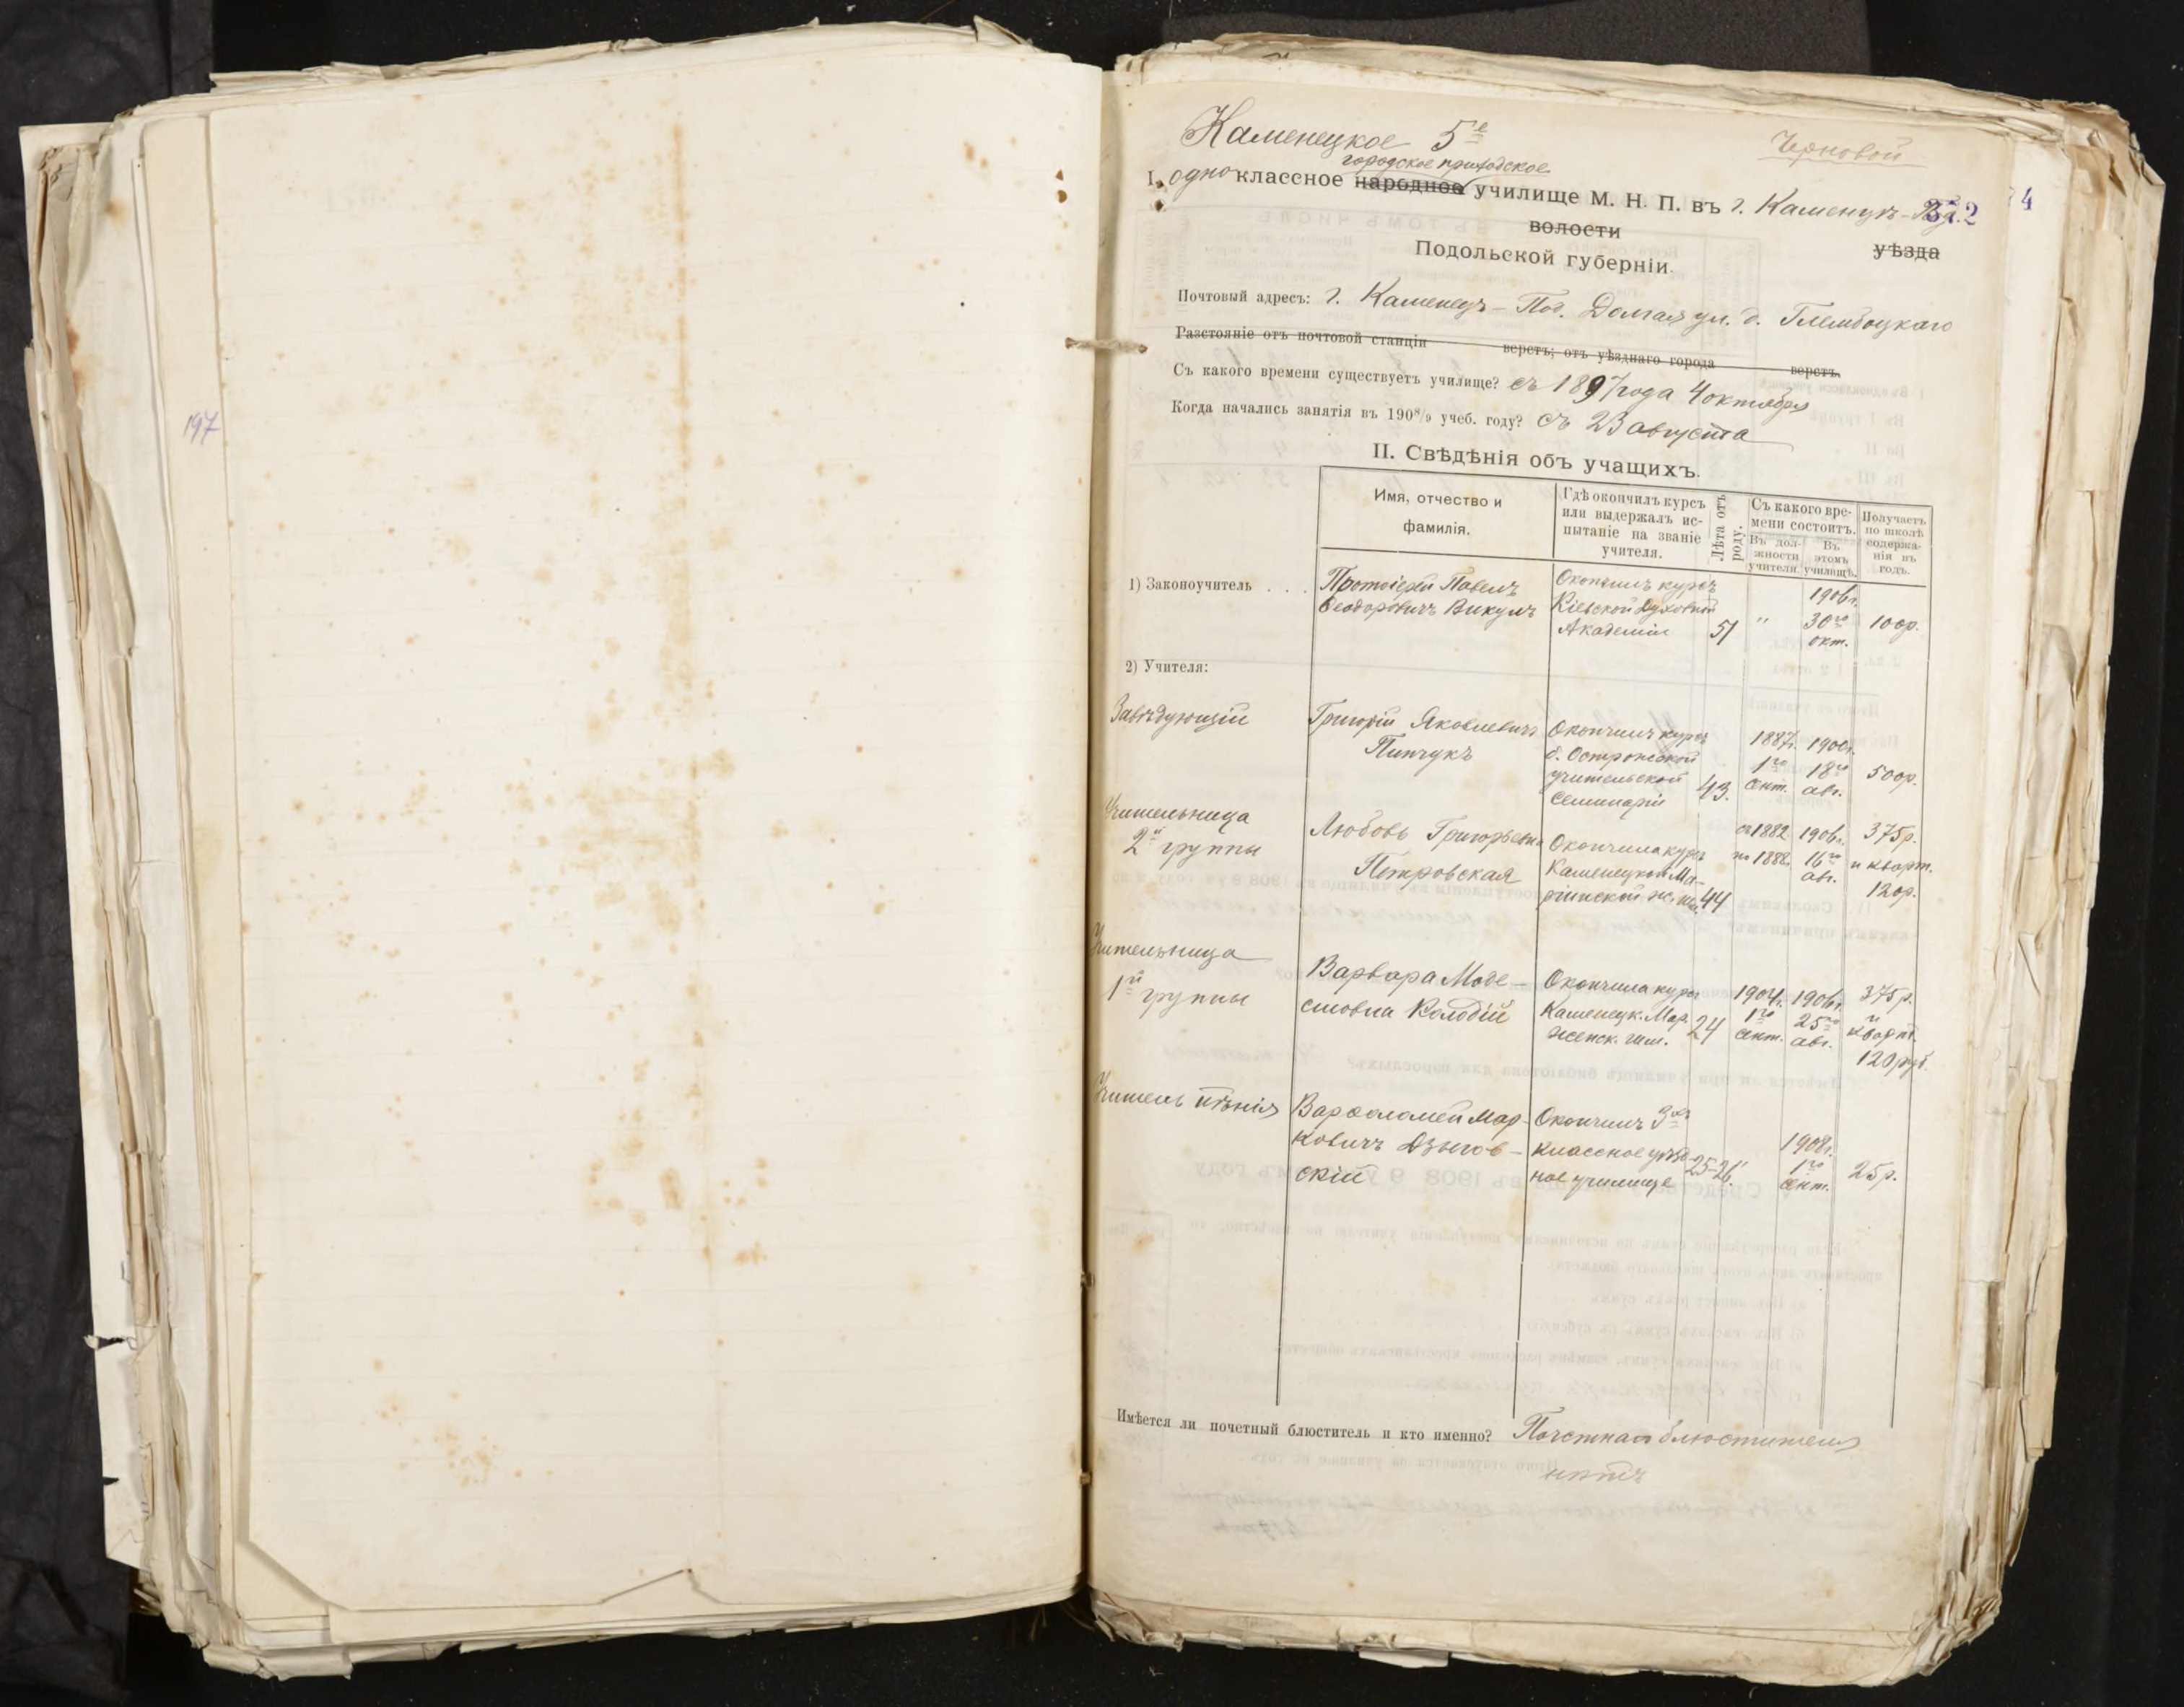 197
Каменецкое 5е
Черновой
городское приходское
I. одноклассное народное училище М. Н. П. въ г. Каменцѣ-Под.
372
74
волости
уѣзда
Подольской губерніи.
Почтовый адресъ: г. Каменецъ-Под. Долгая ул. д. Глембоцкаго
Разстояніе отъ почтовой станціи верстъ; отъ уѣзднаго города верстъ.
Съ какого времени существуетъ училище? съ 1897 года 4 октября
Когда начались занятія въ 1908/9 учеб. году? съ 23 августа
II. Свѣдѣнія объ учащихъ.
Имя, отчество и
фамилія.
Гдѣ окончилъ курсъ
или выдержалъ ис-
пытаніе на званіе
учителя.
Лѣта отъ
роду.
Съ какого вре-
мени состоитъ.
Въ дол-
жности
учителя.
Въ
этомъ
училищѣ.
Получаетъ
по школѣ
содержа-
нія въ
годъ.
1) Законоучитель . . .
Протоіерей Павелъ
Ѳеодоровичъ Викулъ
Окончилъ курсъ
Кіевской Духовной
Академіи
51
"
1906 г.
30го
окт.
100р.
2) Учителя:
Завѣдующій
Григорій Яковлевичъ
Пинчукъ
Окончилъ курсъ
б. Острожской
учительской
Семинаріи
43.
1887г.
1го
сент.
1900г.
18го
авг.
500р.
Учительница
2й группы
Любовь Григорьевна
Петровская
Окончила курсъ
Каменецкой Ма-
ріинской ж. гим.
44
съ 1882
по 1888г.
1906г.
16го
авг.
375р.
и кварт.
120р.
Учительница
1й группы
Варвара Моде-
стовна Колодій
Окончила курсъ
Каменецк. Мар.
женск. гим.
24
1904г.
1го
сент.
1906г.
25го
авг.
375р.
и
кварт.
120 руб.
Учитель пѣнія
Варѳоломей Мар-
ковичъ Дзыгов-
скій
Окончилъ 3хъ
классное уѣзд-
ное училище
25-26
1908г.
1го
сент.
25р.
Имѣется ли почетный блюститель и кто именно? Почетнаго блюстителя
нѣтъ